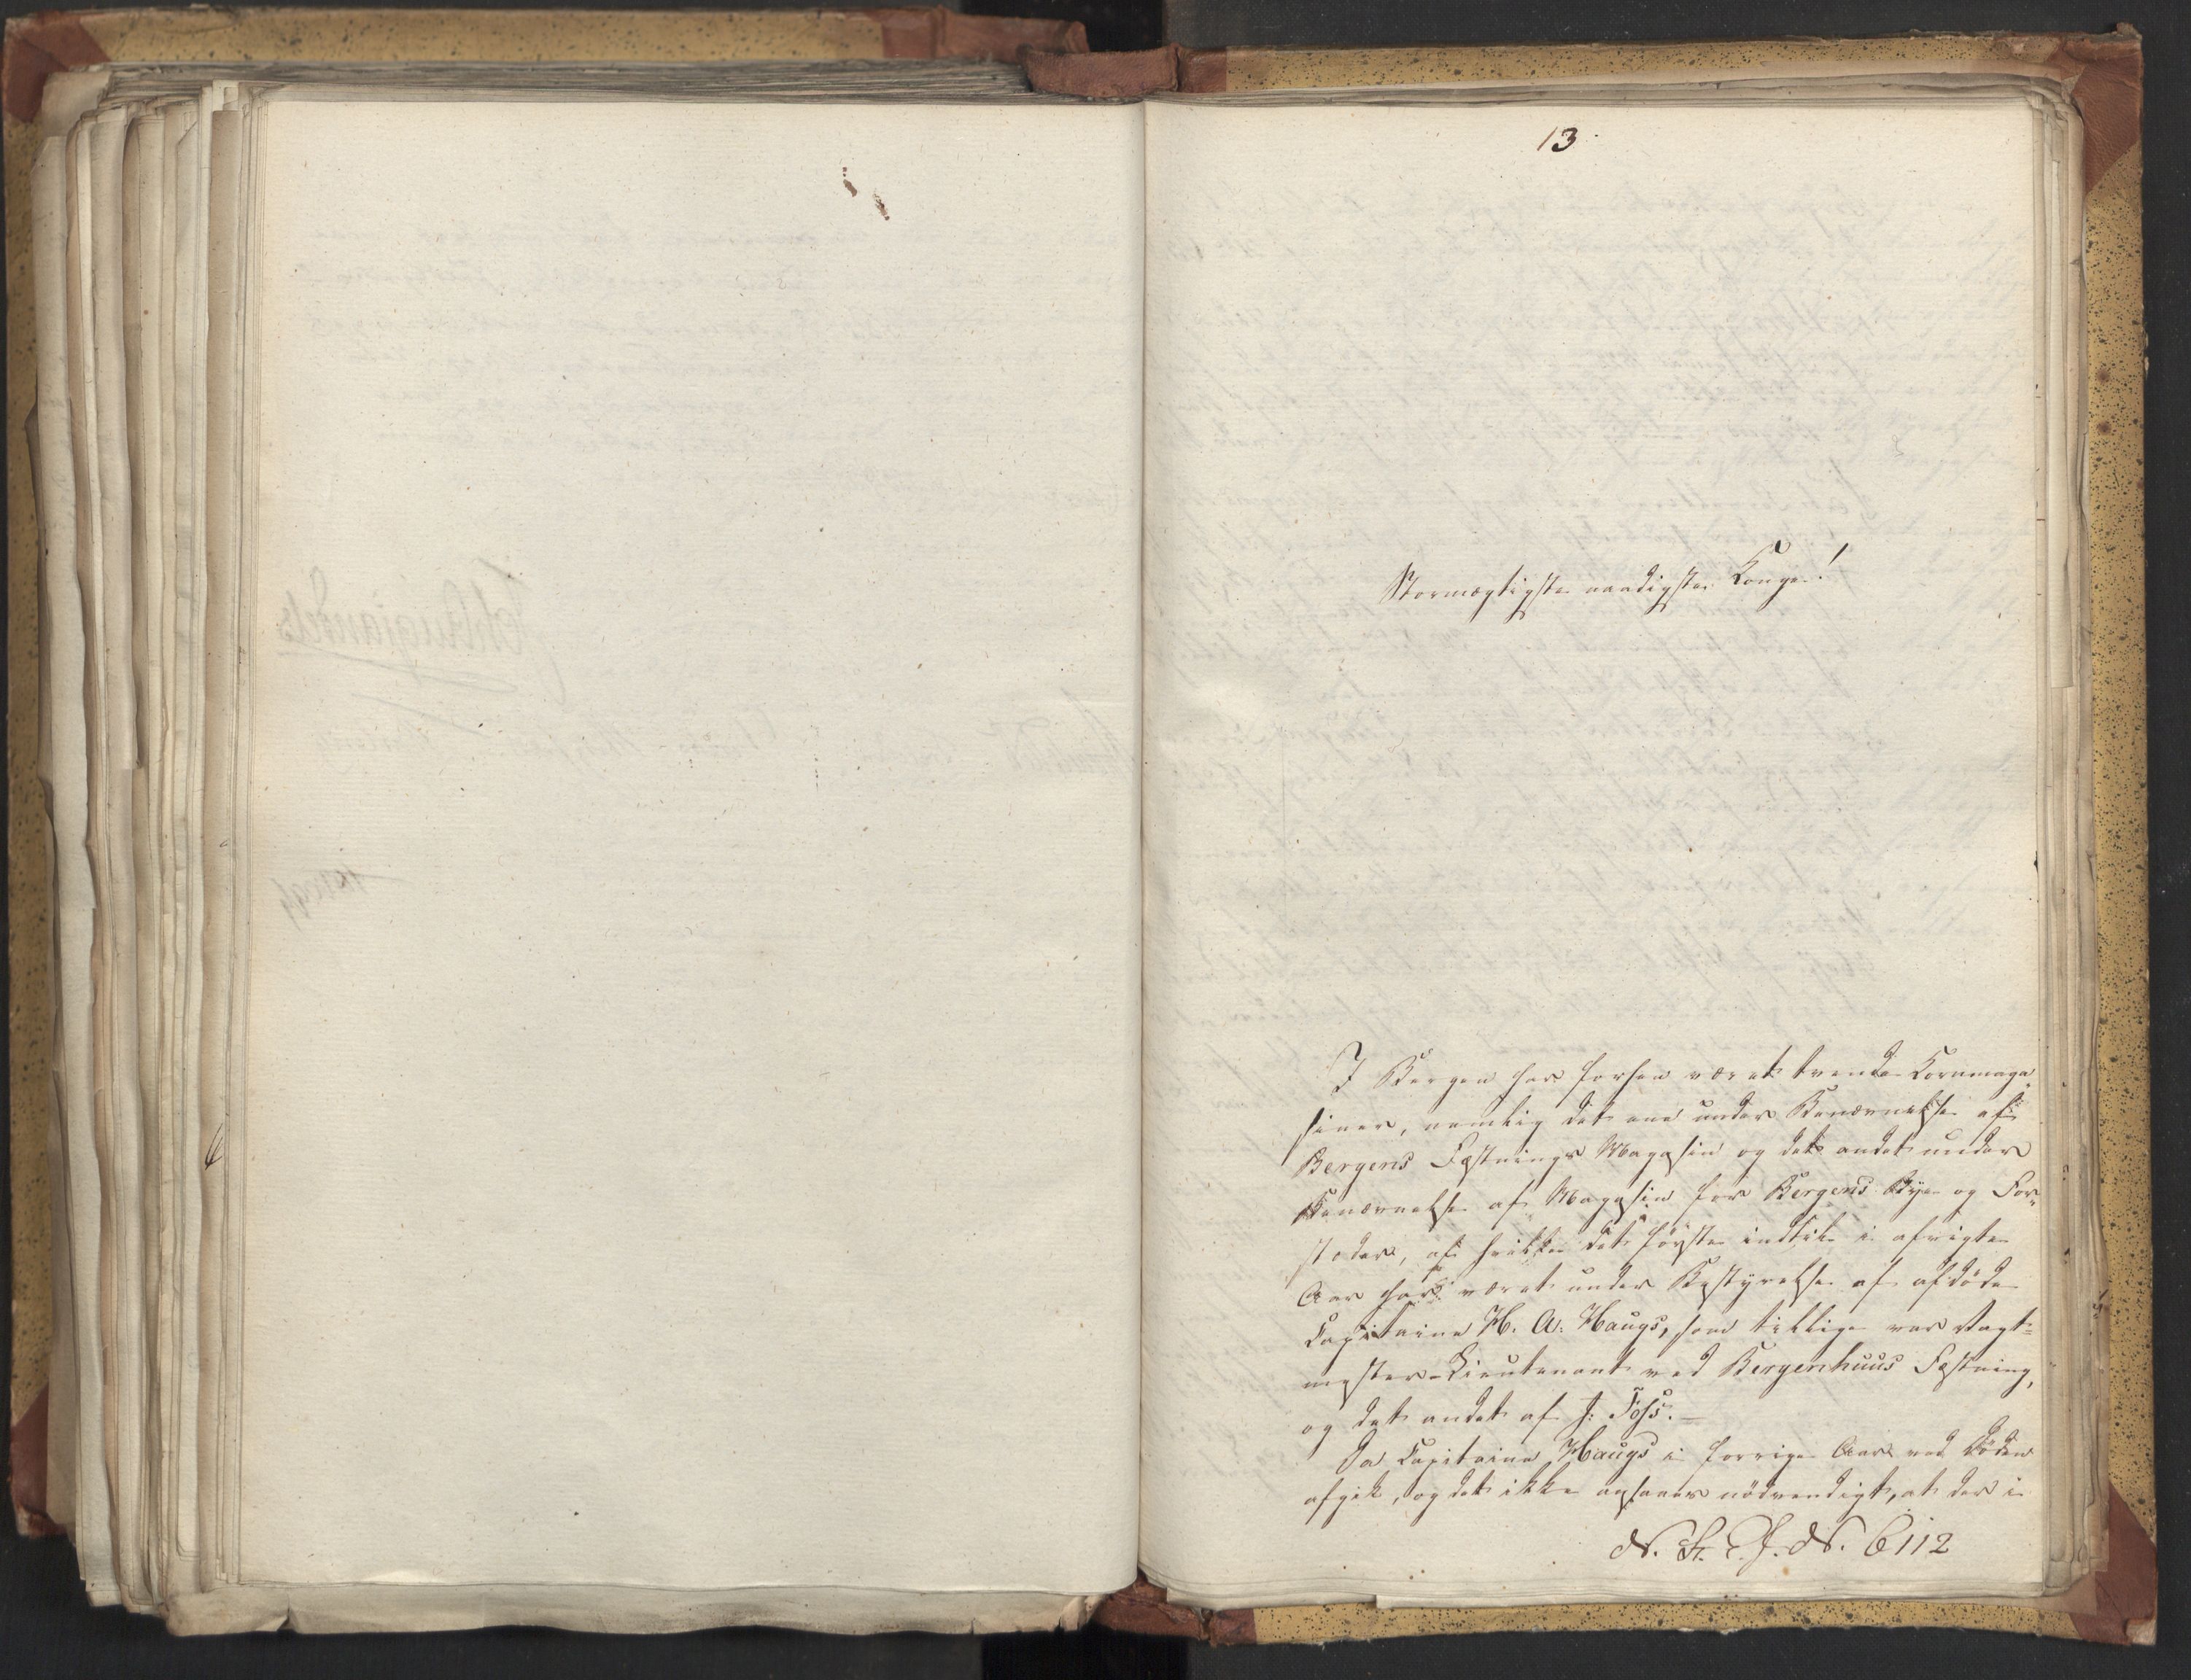 13
Stormægtigste naadigste Konge!
I Bergen har forhen været tvende Kornmaga-
siner, nemlig det ene under Benævnelse af
Bergens Fæstnings Magasin og det andet under
Benævnelse af Magasin for Bergens Bye og For-
stæder, af hvilke det første indtil i afvigte
Aar har været under Bestyrelse af afdøde
Capitaine H. A. Haugs, som tillige var Vagt-
mester-Lieutenant ved Bergenhuus Fæstning,
og det andet af J: Foss.
Da Capitaine Haugs i forrige Aar ved Døden
afgik, og det ikke ansaaes nødvendigt, at der i
6112